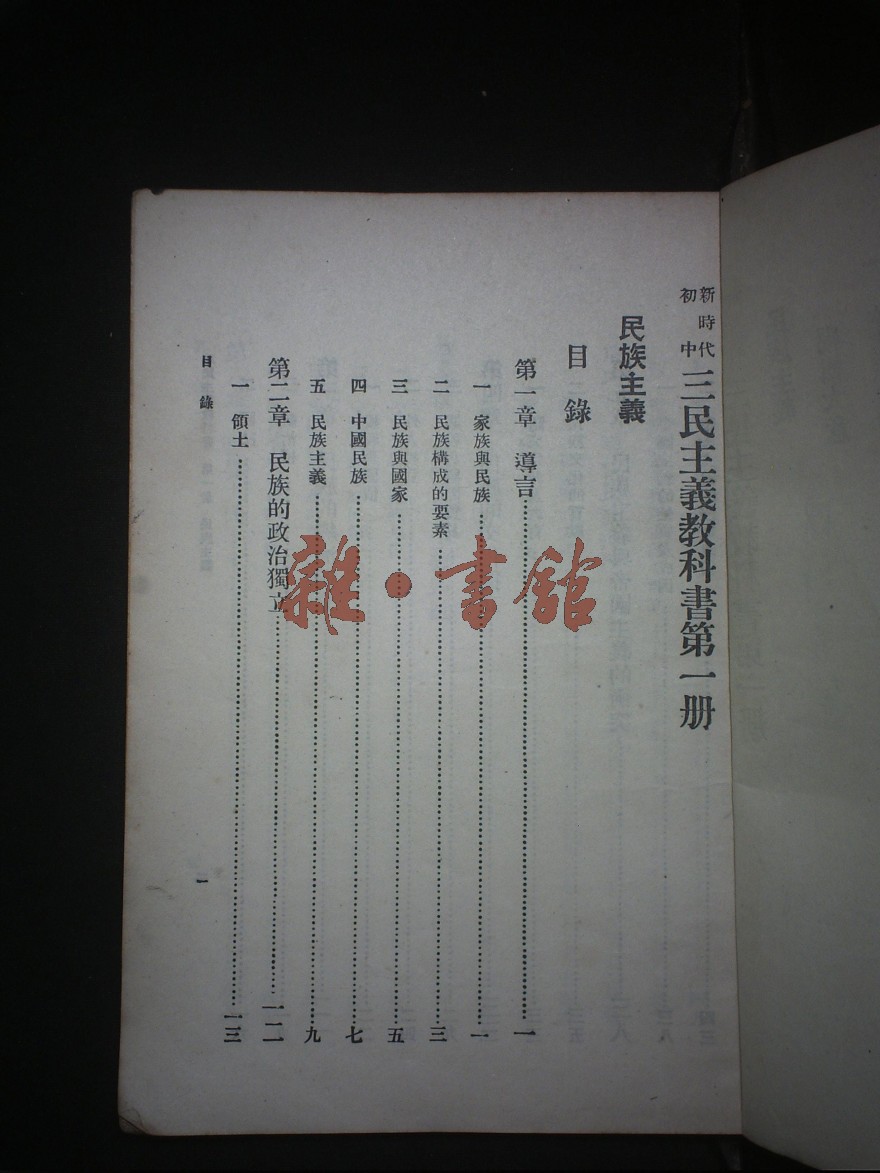 新時代
初中
三民主義教科書第一册
民族主義
目錄
第一章 導言⋯⋯一
一 家族與民族⋯⋯一
二 民族構成的要素⋯⋯三
三 民族與國家⋯⋯五
四 中國民族⋯⋯七
五 民族主義⋯⋯九
第二章 民族的政治獨立⋯⋯一二
一 領土⋯⋯一三
目錄
一
雜·書館